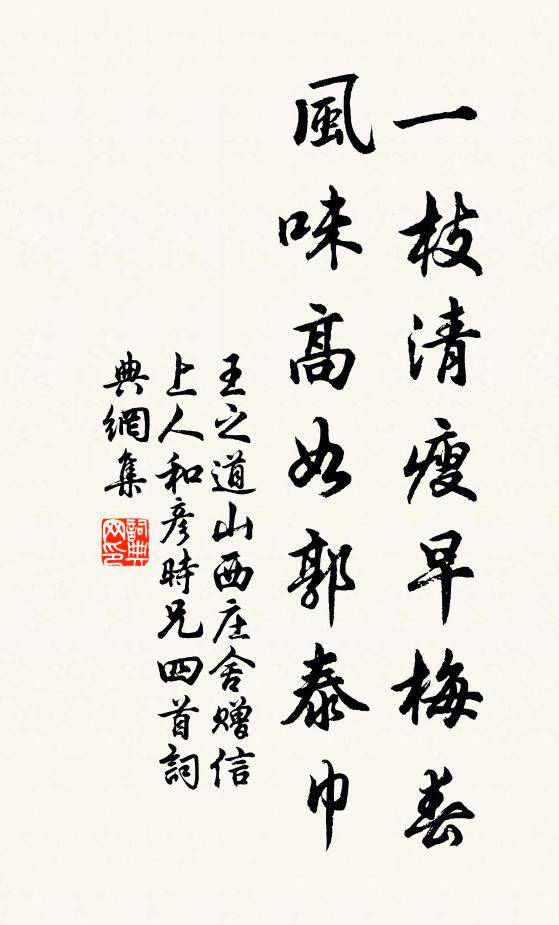 一枝清瘦早梅春
風味高如郭泰巾
王之道山西庄舍贈信
上人和彦時兄四首詞
典網集
詞典網印